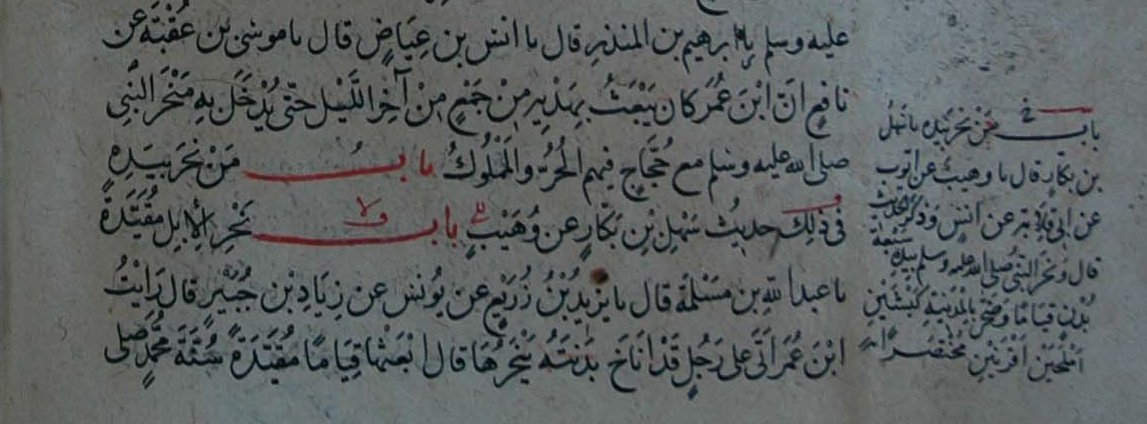 عليه وسلم نا ابرهيم بن المنذر قال نا انس بن عِيَاضٍ قال نا موسى بن عُقْبَة عن
نافع انّ ابْنَ عُمَرَ كان يَبْعَثُ بِهَدْيِهِ مِنْ جَمْعٍ مِنْ آخِرِ اللَّيْلِ حتّى يُدْخَلَ بِهِ مَنْحَرُ النَّبِيِّ
صلى الله عليه وسلم مع حُجَّاجٍ فيهم الحُرُّ والمَمْلُوكُ بابُ مَنْ نَحَرَ بِيَدِهِ
فى ذلِكَ حديثُ سَهْلِ بْنِ بَكَّارٍ عن وُهَيْبٍ باب نَحْرِ الإبِلِ مُقَيَّدَةً
نا عبد اللهِ بن مَسْلَمَة قال نا يزيدُ بْنُ زُرَيْعٍ عن يُونسَ عن زِيَادِ بْنِ جُبَيْرٍ قال رَايْتُ
ابْنَ عُمَرَ اتَى على رَجُلٍ قَدْ انَاخَ بَدَنَتَهُ يَنْحَرُهَا قال ابْعَثْهَا قِيَامًا مُقَيَّدَةً سُنَّةَ مُحَمَّدٍ صلى
باب مَن نحر بيده نا سهل
بن بكّارٍ قال نا وهيبٌ عن ايّوب
عن ابى قِلابة عن انسٍ وذكر الحديث
قال ونحر النبىّ صلى الله عليه وسلم بيده سبعة
بُدْنٍ قيامًا وضحّى بالمدينة كبشَيْنِ
املحَيْن اقْرنَيْنِ مُخْتصرًا